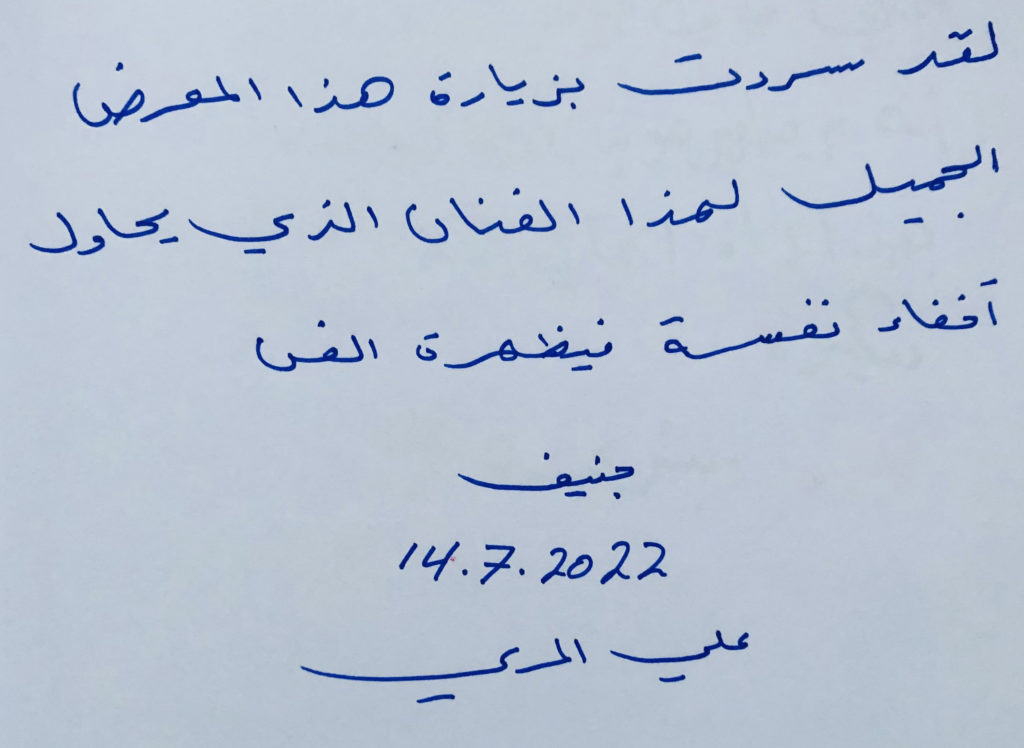 لقد سررت بزيارة هذا المعرض
الجميل لهذا الفنان الذي يحاول
آخفاء نفسة فيظهرة الفن
جنيف
14.7.2022
علي المري